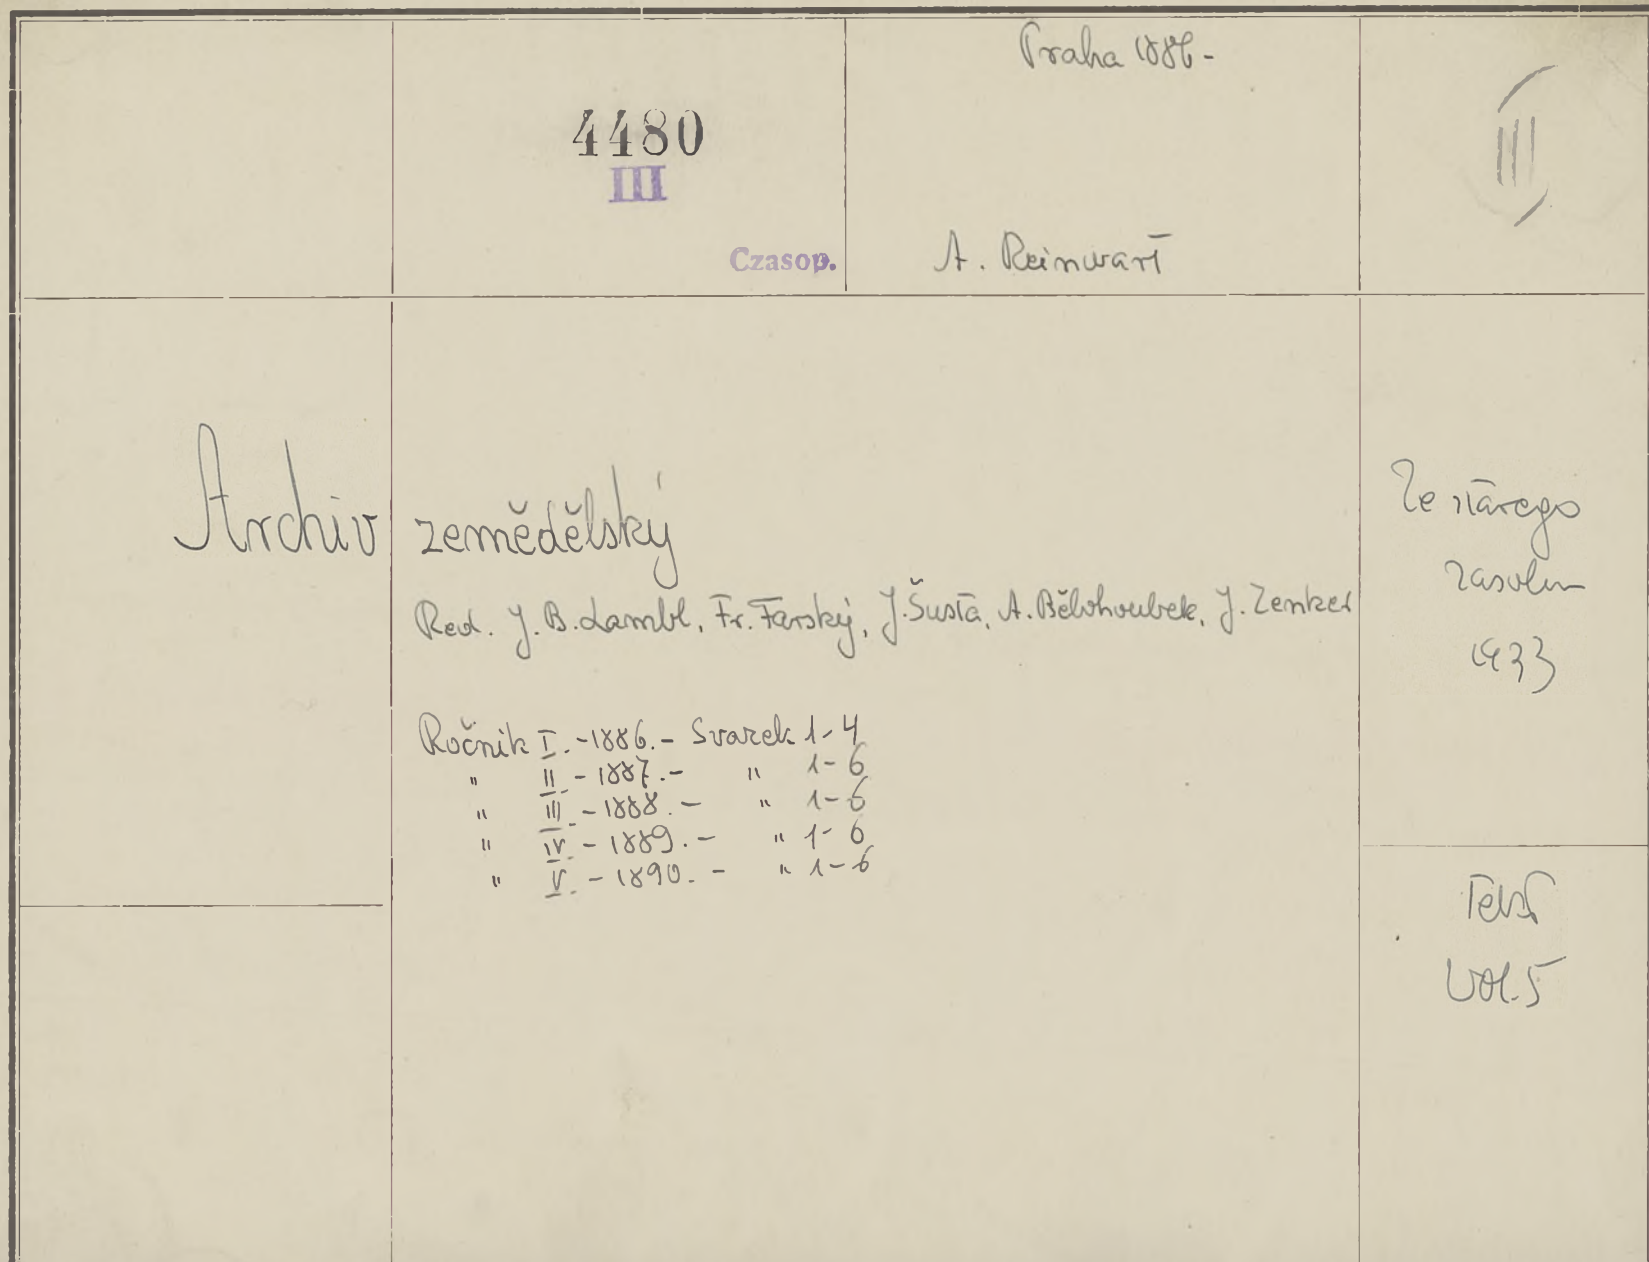 Praha 1886-
4480
III
Czasop.
A. Reinwart
(III)
Archiv zemědělský
Red. J. B. Lambl, Fr. Farský, J. Šusta, A. Bělohoubek, J. Zenker
Ročnik I. - 1886. - Svazek 1-4
" II. - 1887. - " 1-6
" III. - 1888. - " 1-6
" IV. - 1889. - " 1-6
" V. - 1890. - " 1-6
Ze starego
zasobu
1933
Vol. 5